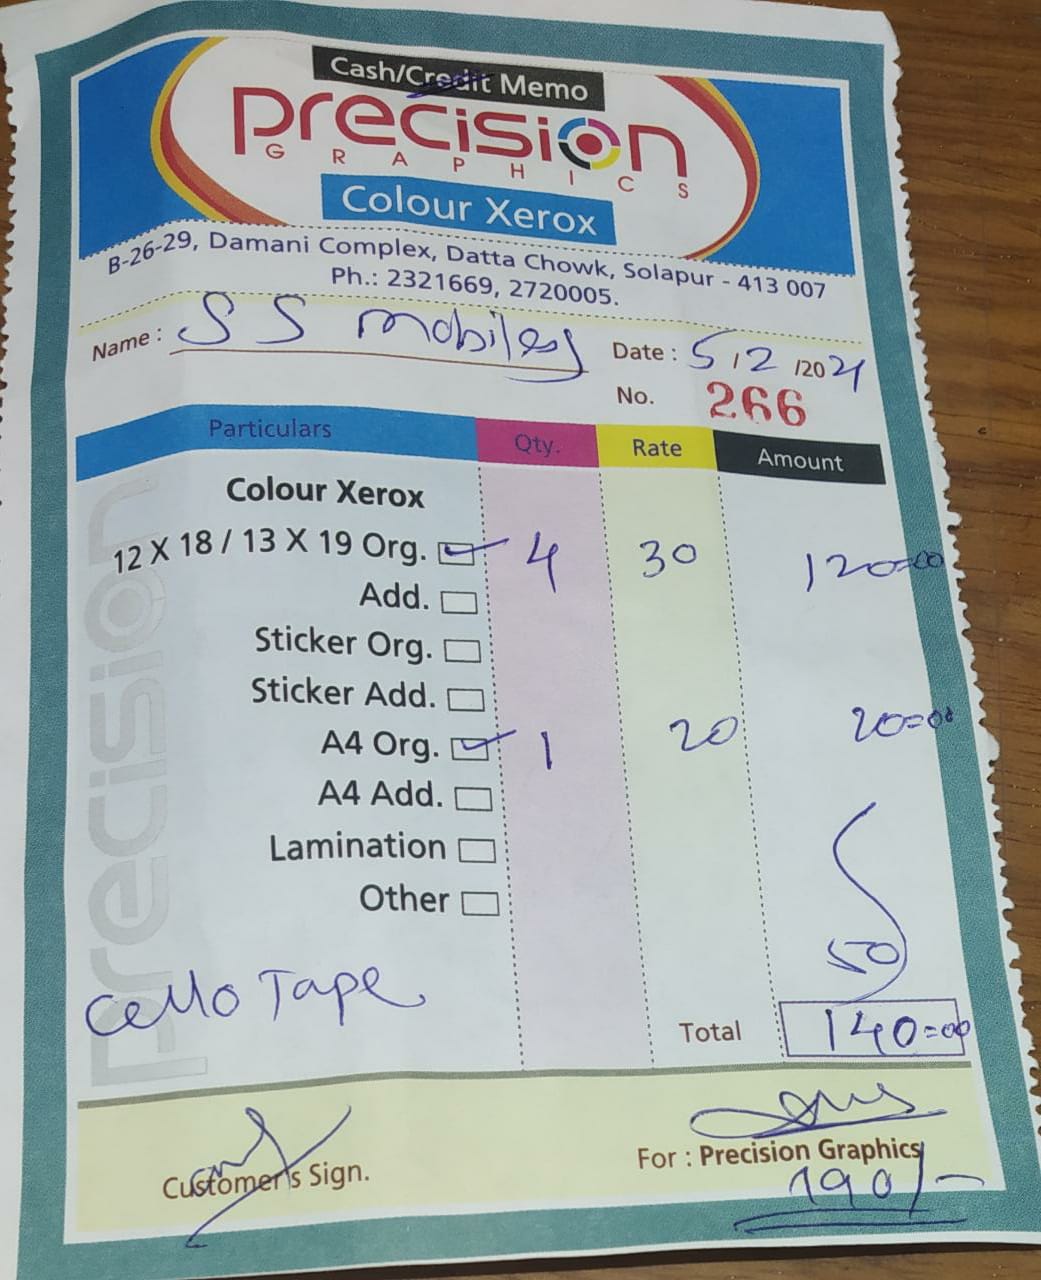 Cash/Credit Memo
precision
GRAPHICS
Colour Xerox
B-26-29, Damani Complex, Datta Chowk, Solapur - 413 007
Ph.: 2321669, 2720005.
Name : SS mobiles Date : 5/2/2021
No. 266
Particulars Qty. Rate Amount
Colour Xerox
12 X 18 / 13 X 19 Org. 4 30 120=00
Add.
Sticker Org.
Sticker Add.
A4 Org. 1 20 20=00
A4 Add.
Lamination
Other
precision
Cello Tape 50
Total 140=00
Customer's Sign. For : Precision Graphics
190/-